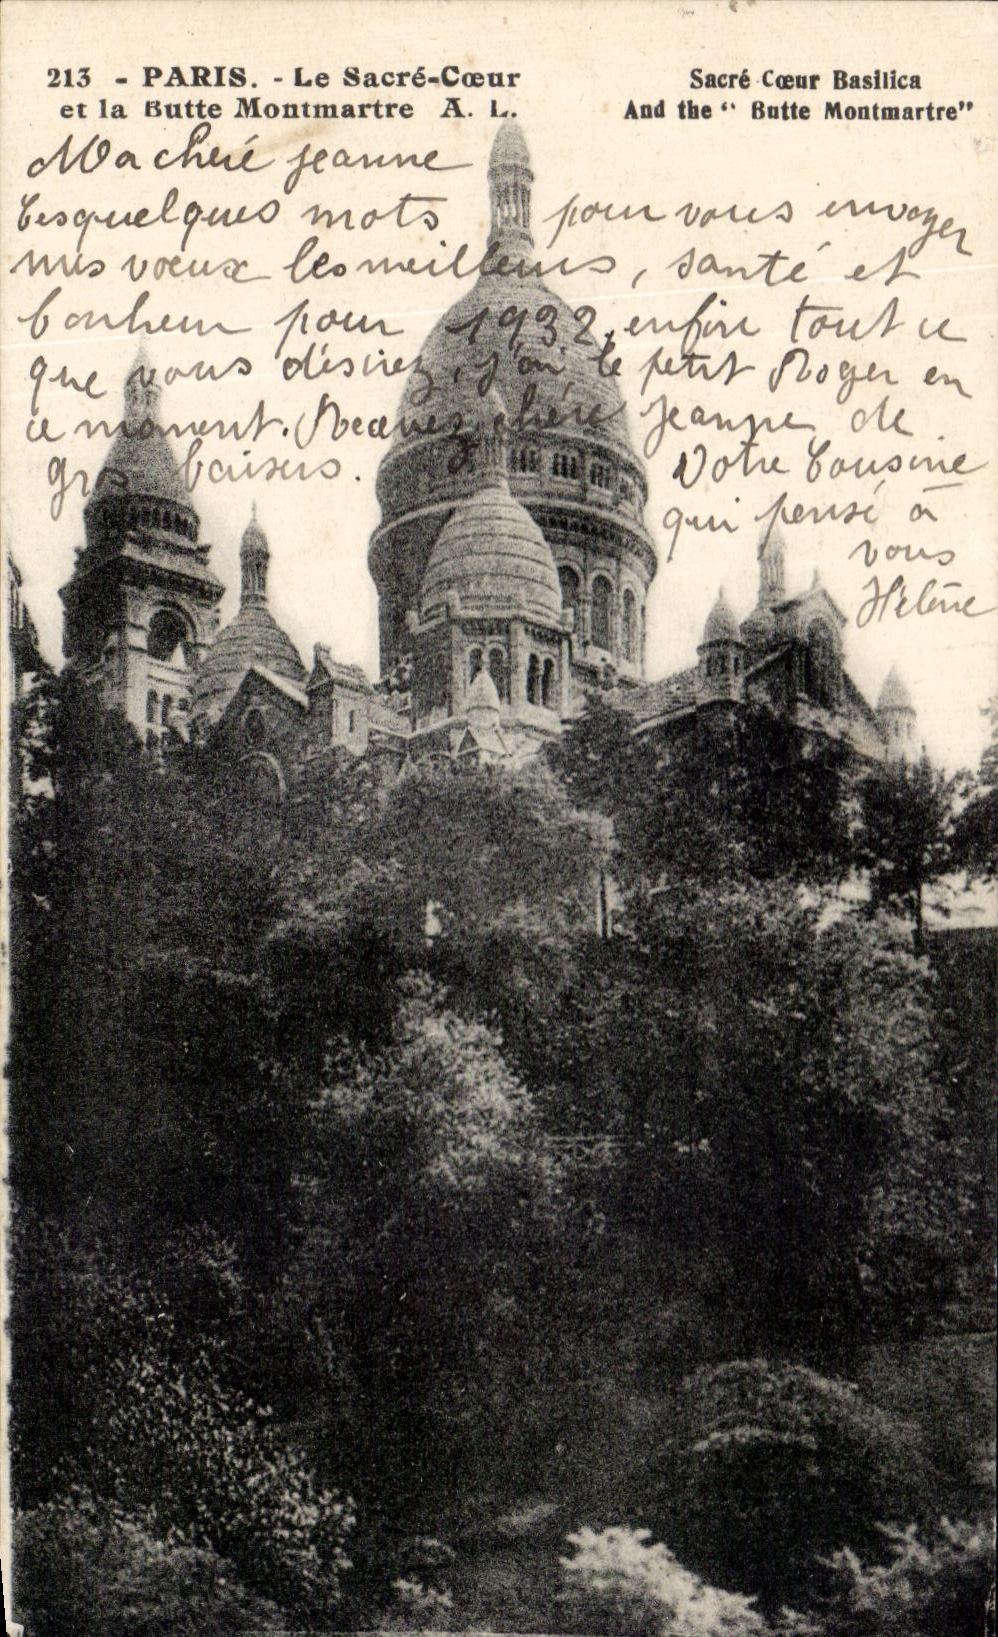 213 - PARIS. - Le Sacré-Cœur
et la Butte Montmartre A. L.
Sacré Cœur Basilica
And the “ Butte Montmartre”
Ma cheré jeanne
Cesquelques mots pour vous envoyer
mes vœux les meilleurs, santé et
bonheur pour 1932, enfin tout ce
que vous désirez, j'ai le petit Roger en
ce moment. Recevez chére Jeanne de
gros baisers. Votre Cousine
qui pensé à
vous
Héléne